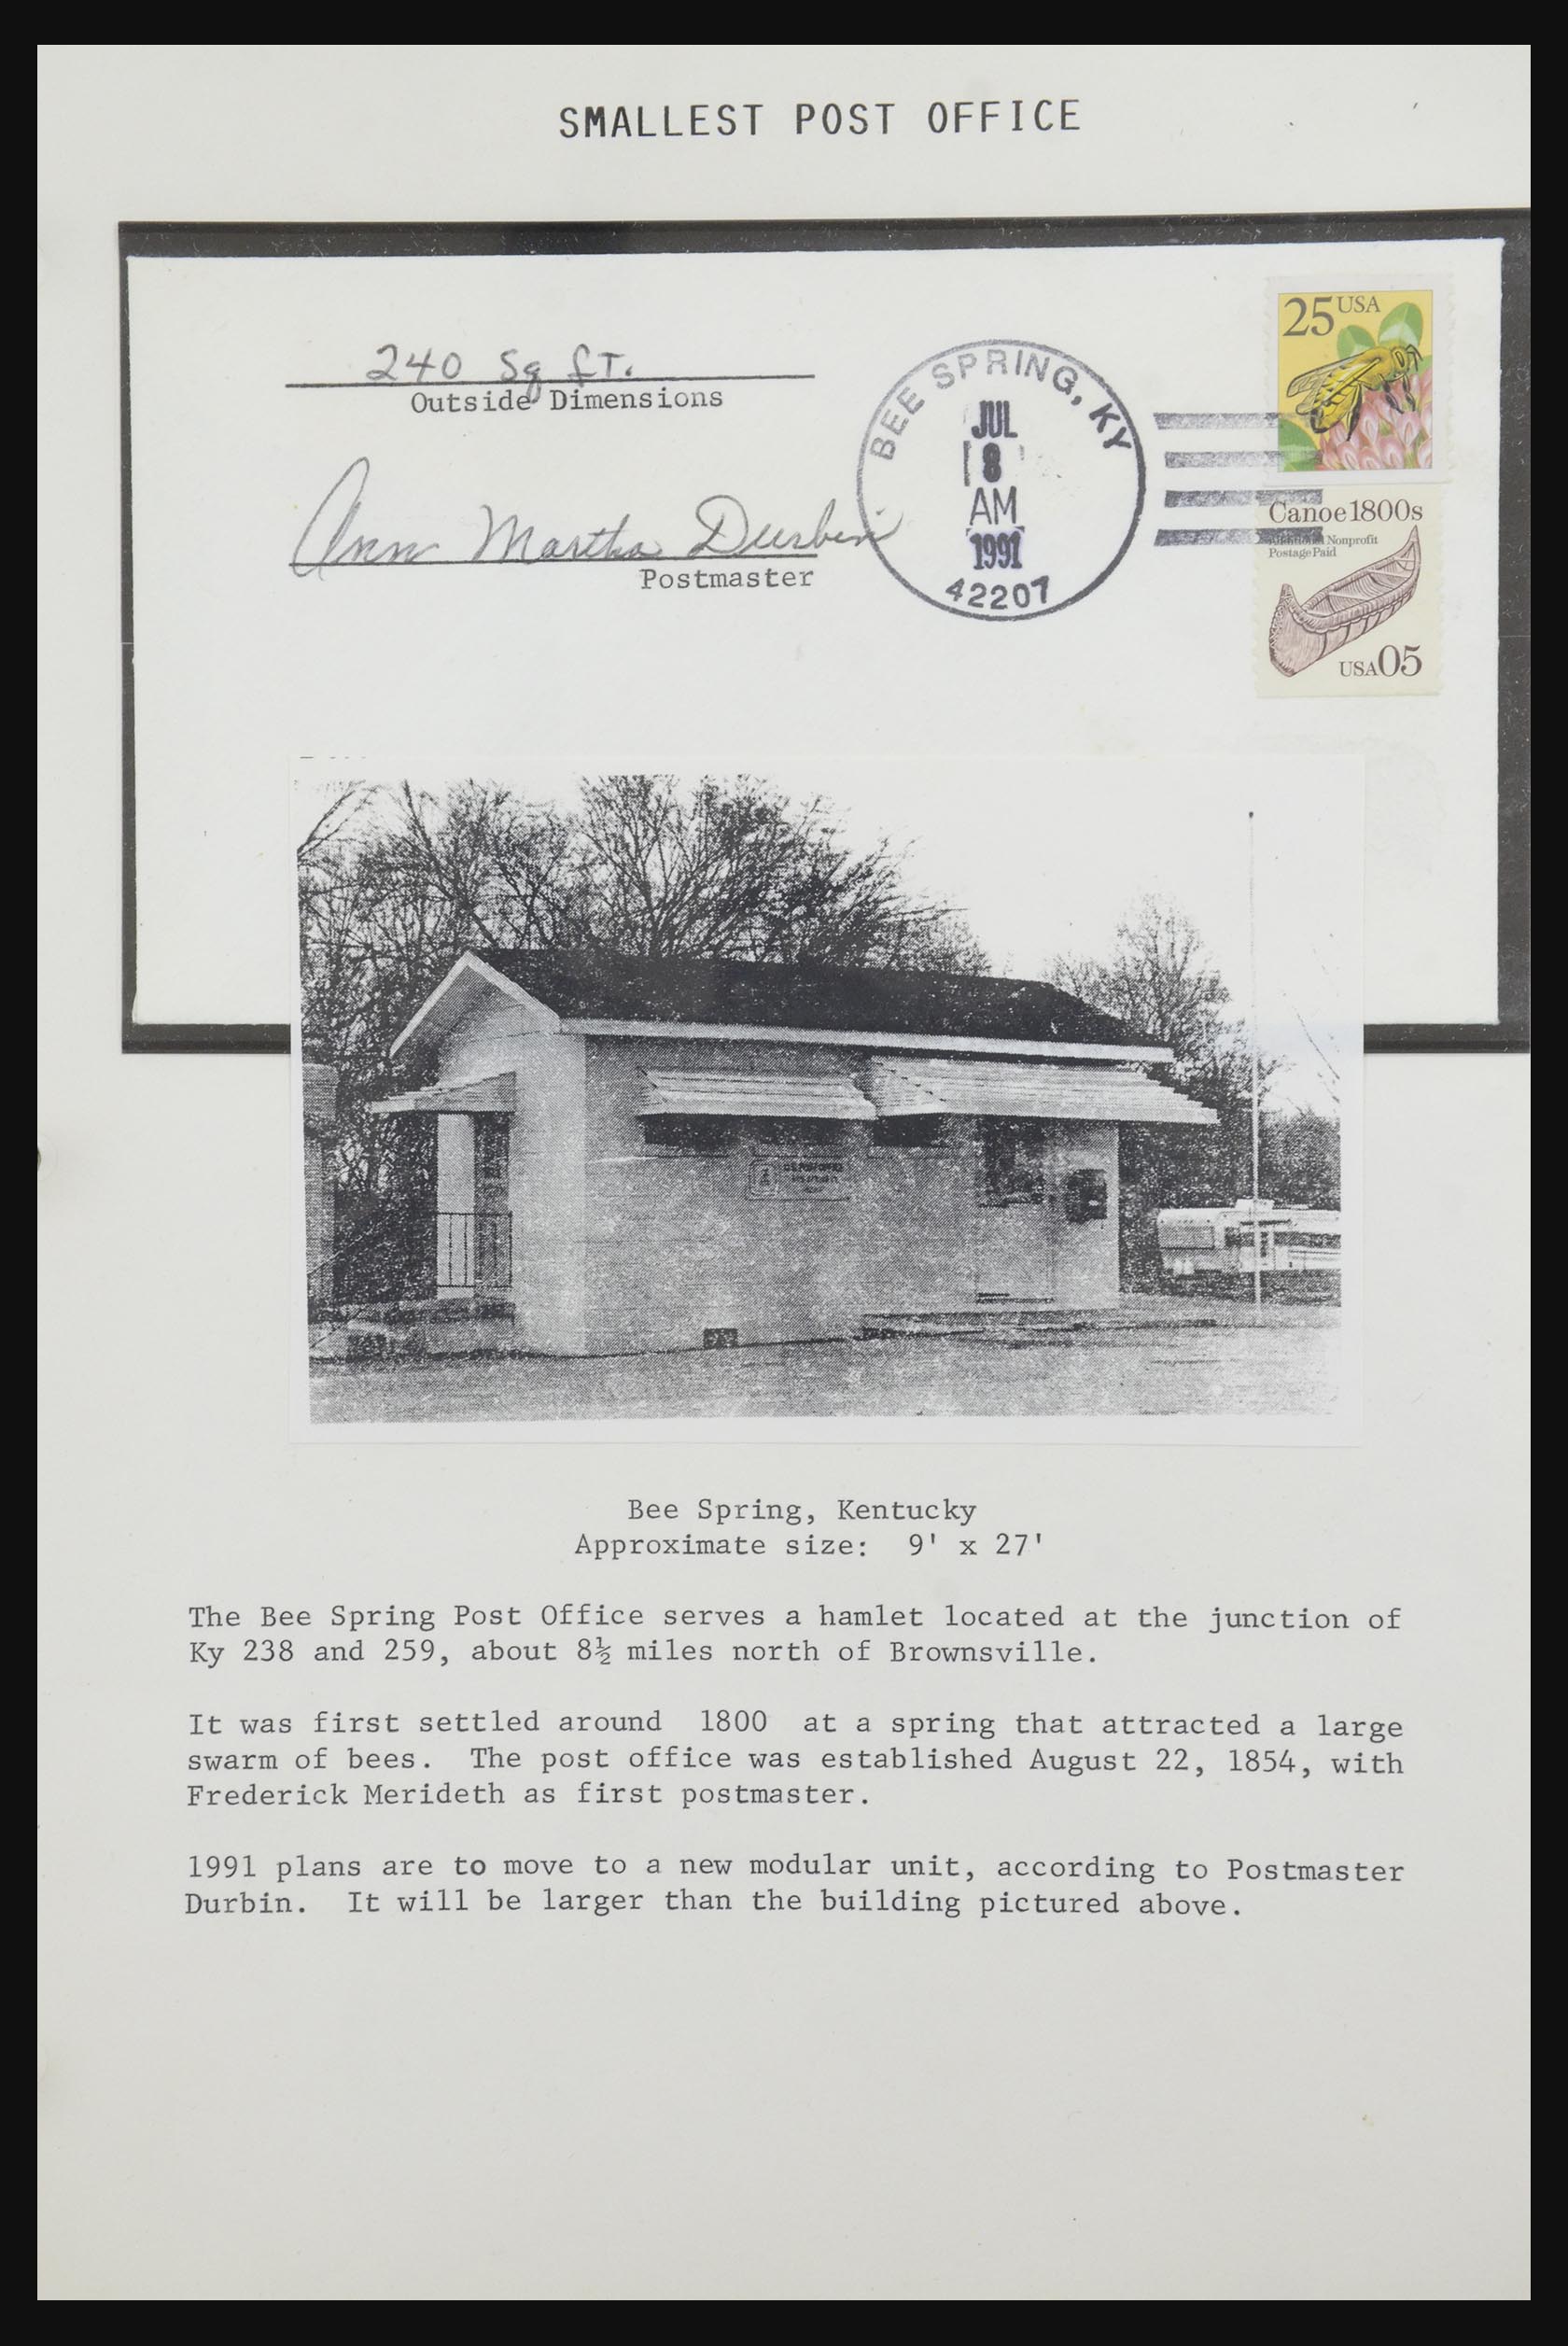 SMALLEST POST OFFICE
240 Sq ft.
Outside Dimensions
Ann Martha Durbin
Postmaster
BEE SPRING, KY
JUL
8
AM
1991
42207
25 USA
Canoe 1800s
Nonprofit
Postage Paid
USA 05
U.S. POST OFFICE
Bee Spring, Kentucky
Approximate size: 9' x 27'
The Bee Spring Post Office serves a hamlet located at the junction of
Ky 238 and 259, about 8½ miles north of Brownsville.
It was first settled around 1800 at a spring that attracted a large
swarm of bees. The post office was established August 22, 1854, with
Frederick Merideth as first postmaster.
1991 plans are to move to a new modular unit, according to Postmaster
Durbin. It will be larger than the building pictured above.